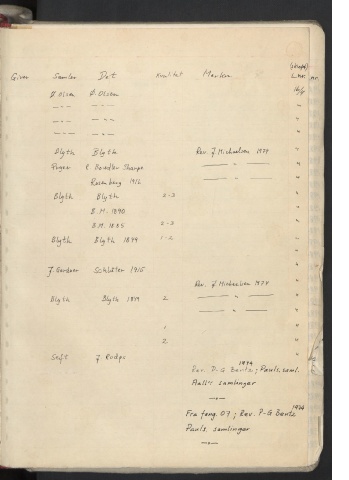 Giver Samler Det Kvalitet Merkn.
Ø. Olsen Ø. Olsen
— " —
— " — — " —
— " — — " —
Blyth Blyth Rev. J. Michaelsen 1974
R Bowdler Sharpe — " —
Rosenberg 1912 — " —
Blyth Blyth 2-3
B.M. 1890
B.M. 1885 2-3
Blyth Blyth 1849 1-2
J. Gardner Schlüter 1916
Rev. J. Michaelsen 1974
Blyth Blyth 1849 2 — " —
— " —
1
2
J. Rodge
Rev. P-G Bentz 1974; Pauls. saml.
Aall's samlinger
— " —
Fra fang. 07; Rev. P-G Bentz 1974
Pauls. samlinger
— " —